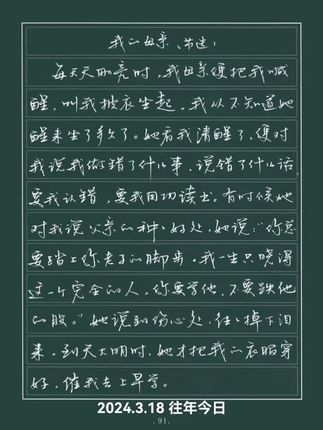 我的母亲（节选）
每天天刚亮时，我母亲便把我喊
醒，叫我披衣坐起。我从不知道她
醒来坐了多久了。她看我清醒了，便对
我说我做错了什么事，说错了什么话，
要我认错，要我用功读书。有时候她
对我说父亲的种种好处，她说：“你总
要踏上你老子的脚步。我一生只晓得
这一个完全的人，你要学他，不要跌他
的股。”她说到伤心处，往往掉下泪
来。到天大明时，她才把我的衣服穿
好，催我去上早学。
2024.3.18 往年今日
.91.